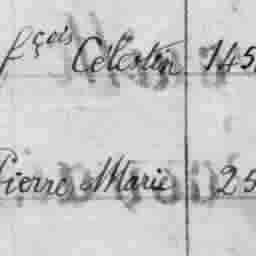 fçois Célestin 145
Pierre Marie 25